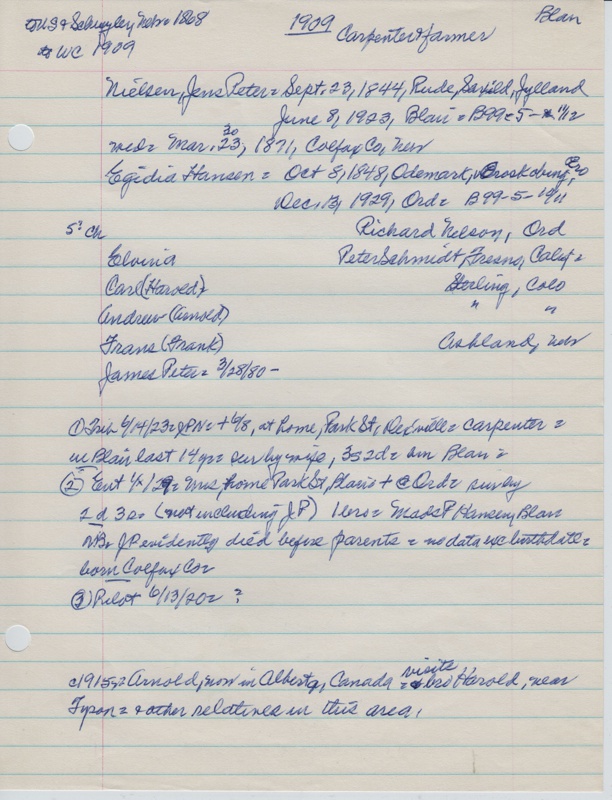 to US & Schuyler, Nebr = 1868
to WC 1909
1909
Carpenter & farmer
Blair
Nielsen, Jens Peter = Sept. 23, 1844, Rude, Jylland
June 8, 1923, Blair = B99-5-11/12
med = Mar. 23, 30 1871, Colfax Co, Nebr
Egidia Hansen = Oct 8, 1848, Odemark,
Dec. 13, 1929, Ord = B99-5-10/11
5? Ch
Richard Nelson, Ord
Elviria Peter Schmidt, Fresno, Calif =
Carl (Harold) Sterling, Colo
Andrew (Arnold) " "
Frans (Frank) Ashland, Nebr
James Peter = 3/28/80 -
① Trib 6/14/23 = JPN = + 6/8, at home, Park St, = carpenter =
in Blair last 14 yr = sur by wife, 3s 2d = bur Blair =
② Ent = Mrs, home Park St, Blair = + @ Ord = surv by
2 d 3 s = (not including JP) 1 bro = Mads P Hansen, Blair
NB = JP evidently died before parents = no data exc birthdate =
born Colfax Co =
③ Pilot 6/13/20 = ?
c1915 = Arnold, now in Alberta, Canada = visits bro Harold, near
Tyson = & other relatives in this area.